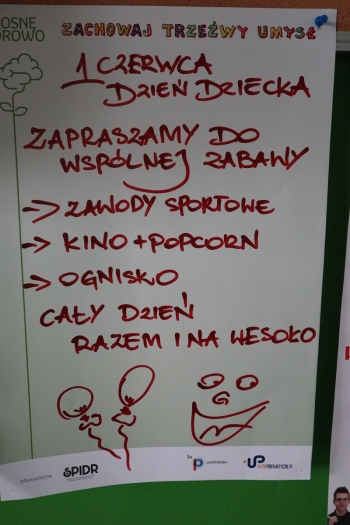 ZACHOWAJ TRZEŹWY UMYSŁ
1 CZERWCA
DZIEŃ DZIECKA
ZAPRASZAMY DO
WSPÓLNEJ ZABAWY
→ ZAWODY SPORTOWE
→ KINO + POPCORN
→ OGNISKO
CAŁY DZIEŃ
RAZEM I NA WESOŁO
ORGANIZATOR
SPIDR
UP